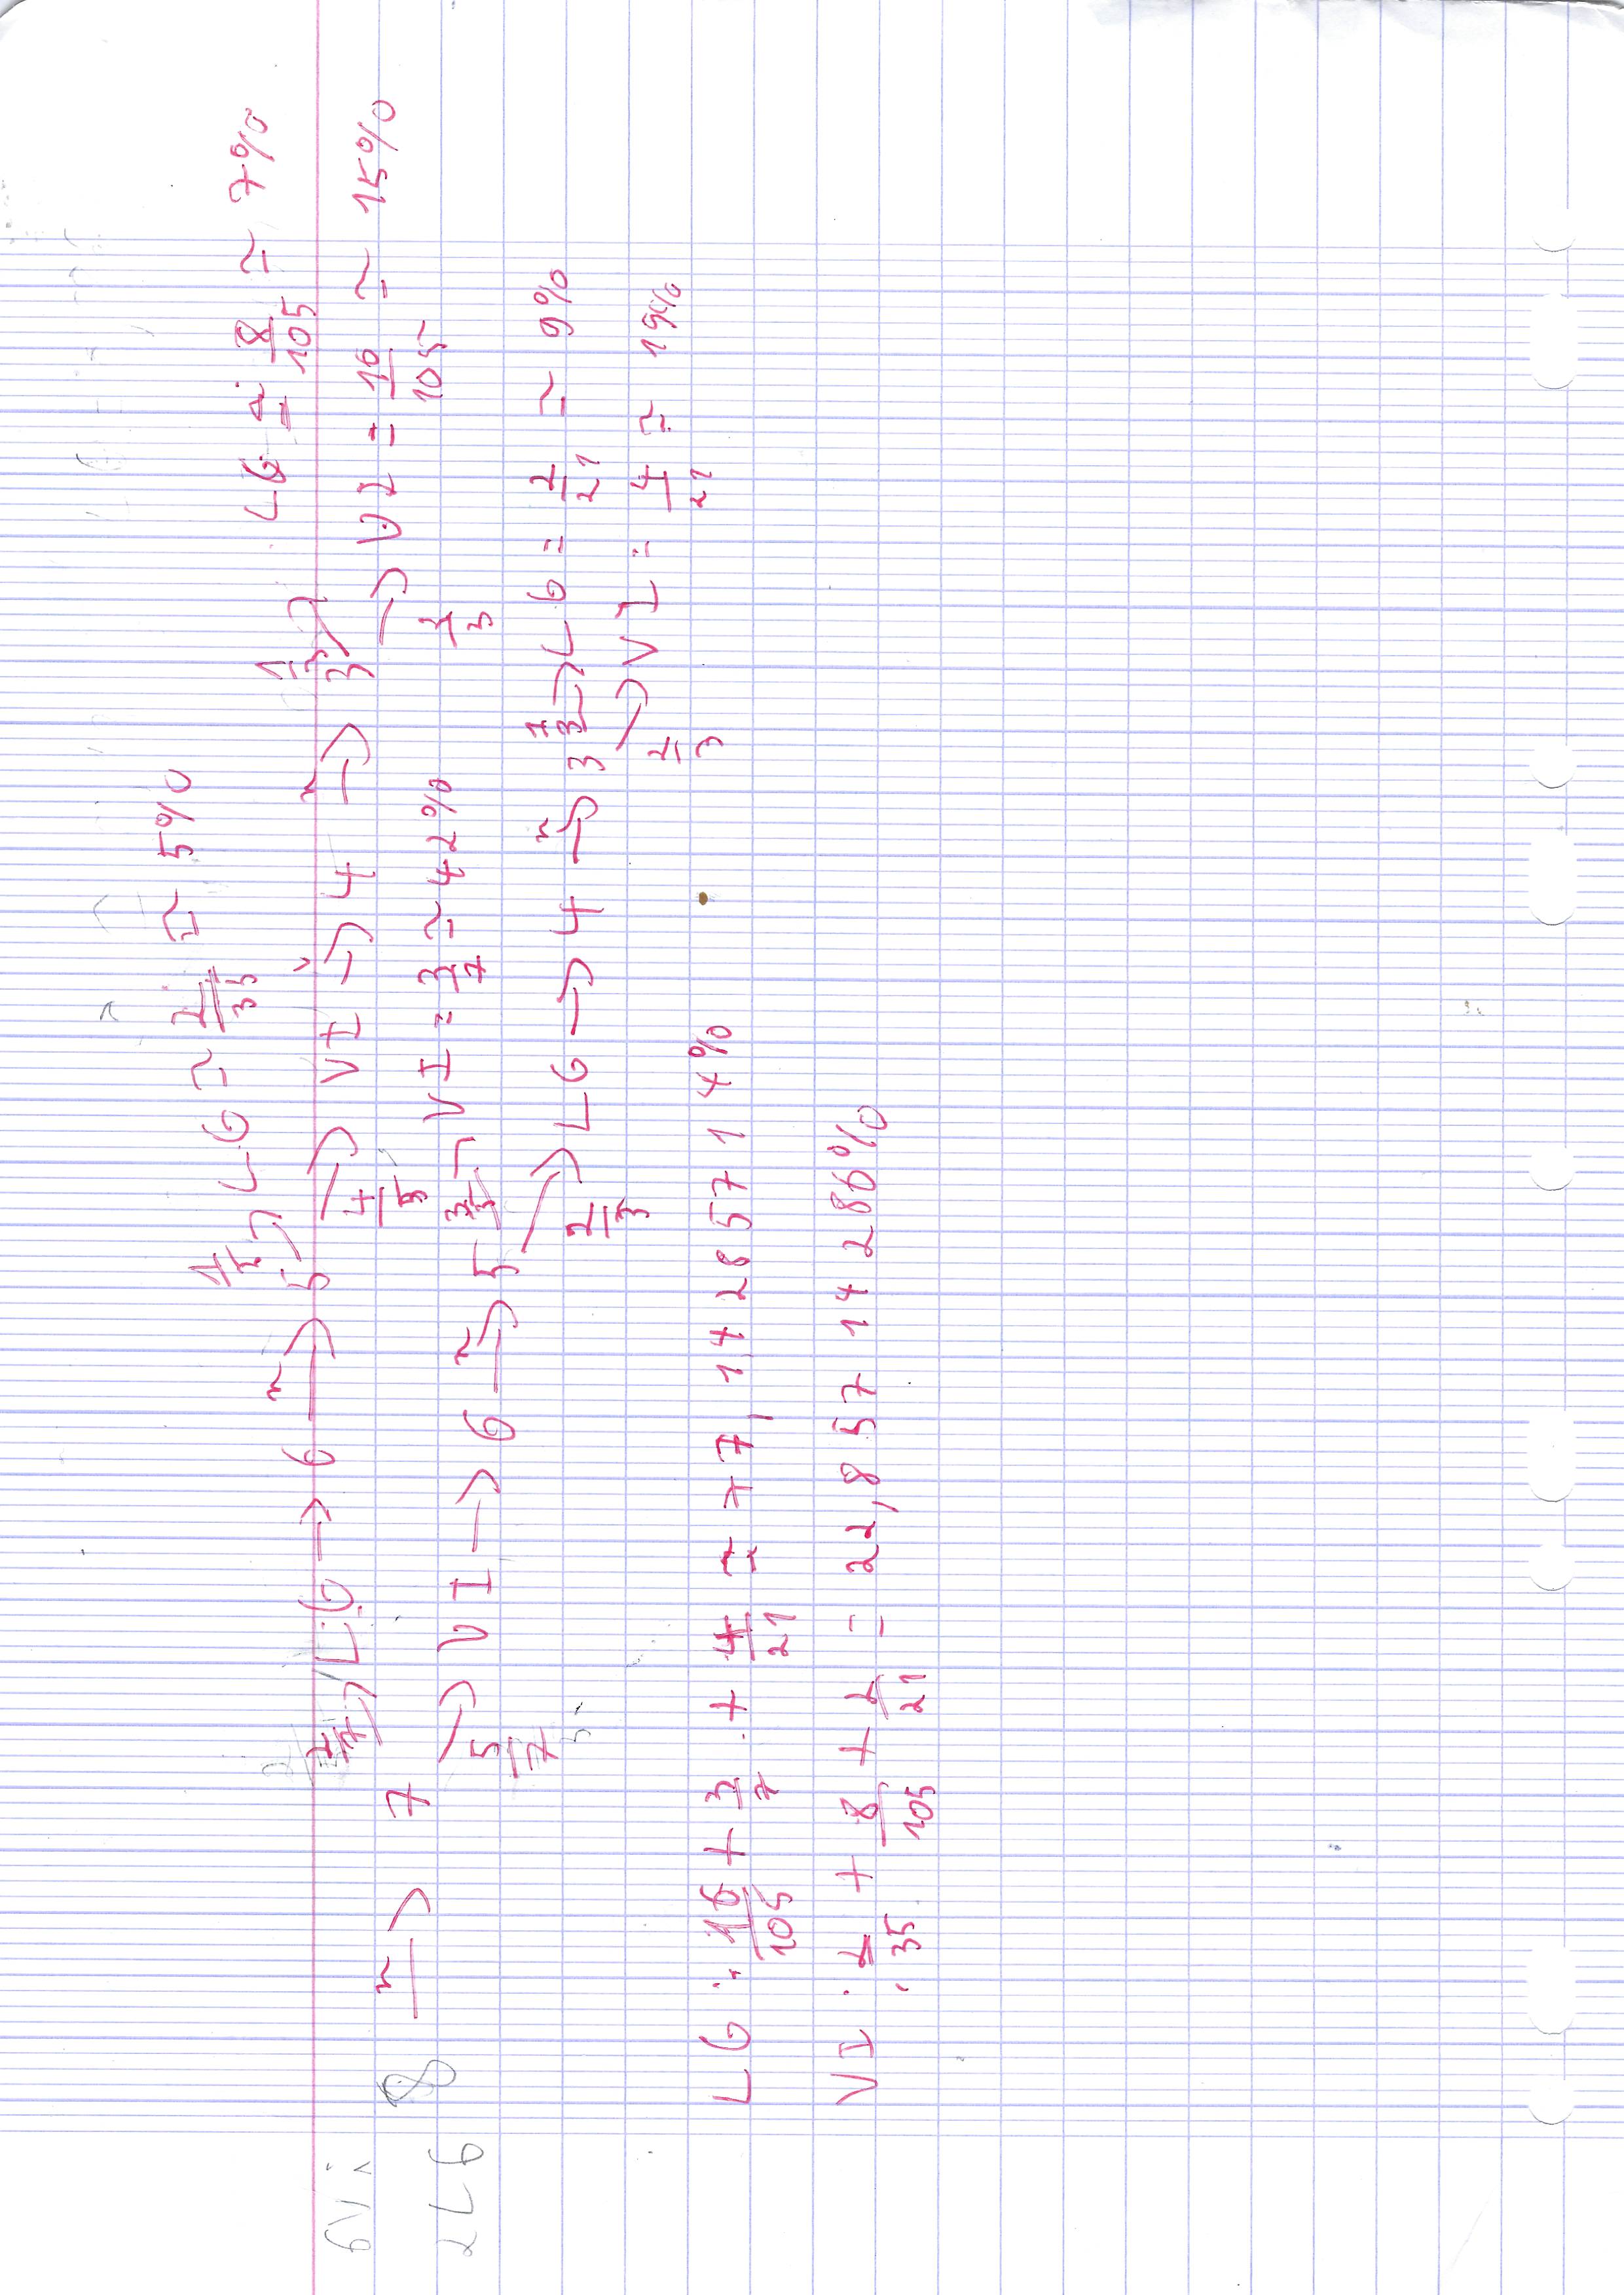 1/5 LG ≃ 2/35 ≃ 5%
2/7 LG → 6 n→ 5 4/5 → VI → 4 n→ 3 1/3 LG = 8/105 ≃ 7%
6Vi
2LG
8 n→ 7
3/3 VI = 16/105 ≃ 15%
5/7 → VI → 6 n→ 5 3/5 → VI = 3/7 ≃ 42%
2/5 → LG → 4 n→ 3 1/3 → LG = 2/21 ≃ 9%
2/3 → VI = 4/21 ≃ 19%
LG : 16/105 + 3/7 + 4/21 ≃ 77,14285714%
VI : 2/35 + 8/105 + 2/21 = 22,85714286%